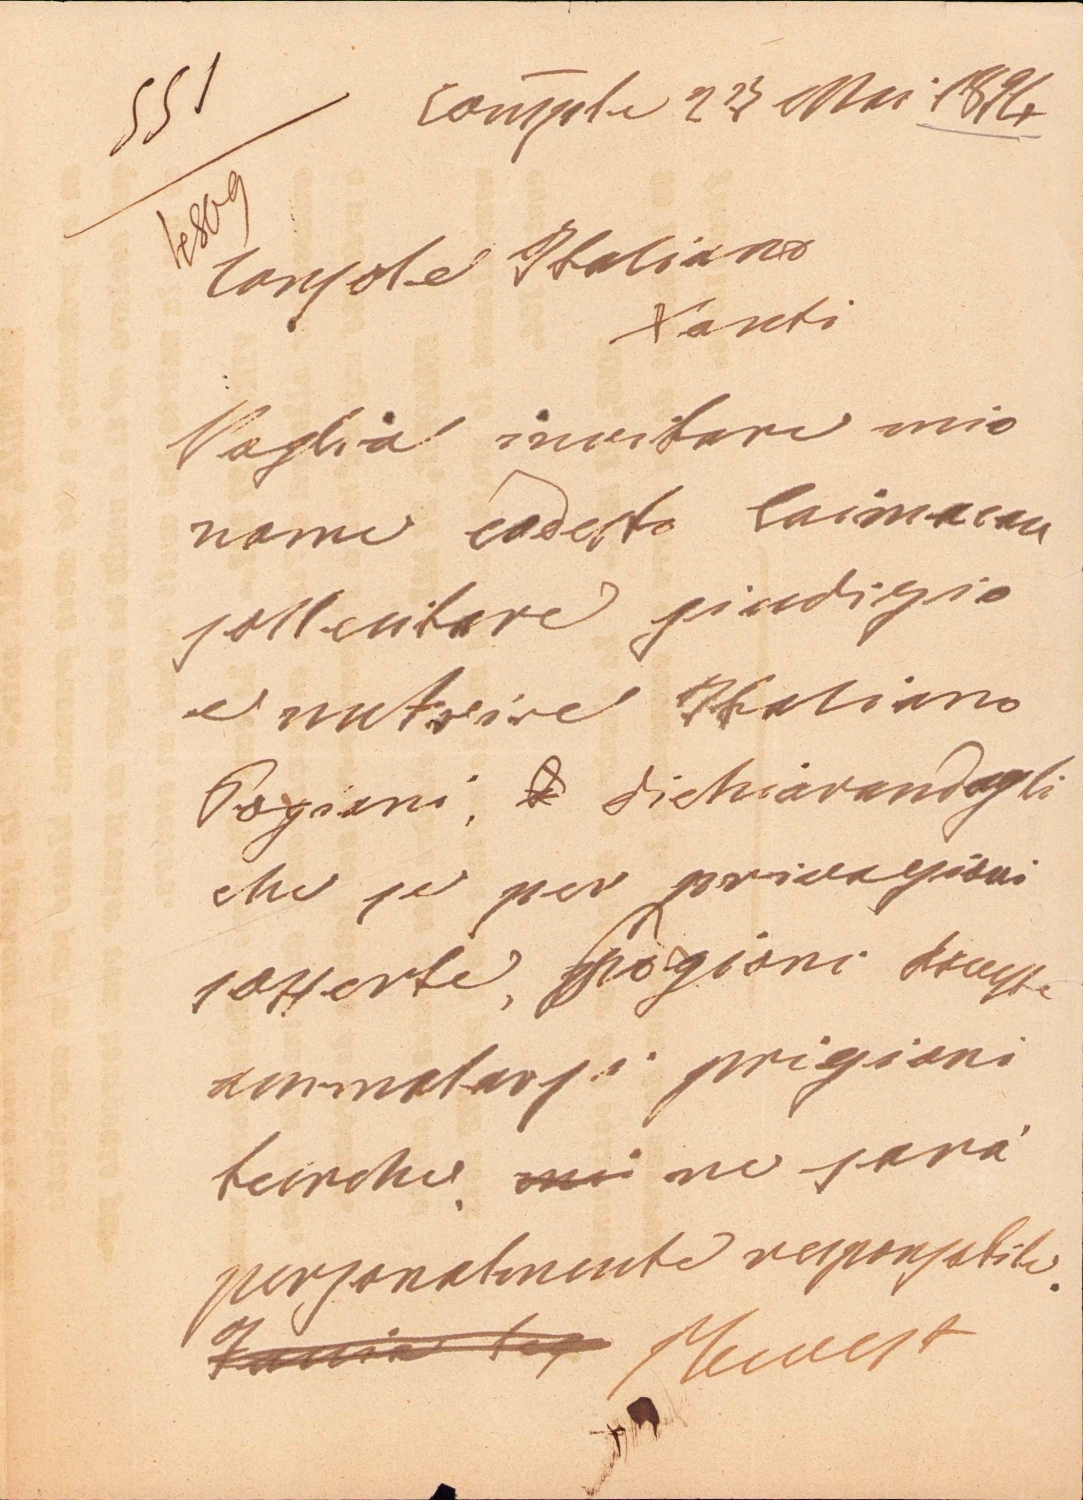 551
4809
Consple 23 Mai 1894
Console Italiano
Xanti
Voglia invitare mio
nome codesto Caimacan
sollecitare giudizio
e nutrire Italiano
Pogiani, dichiarandogli
che se per privazioni
sofferte, Pogiani dovesse
ammalarsi prigioni
turche, ne sarà
personalmente responsabile.